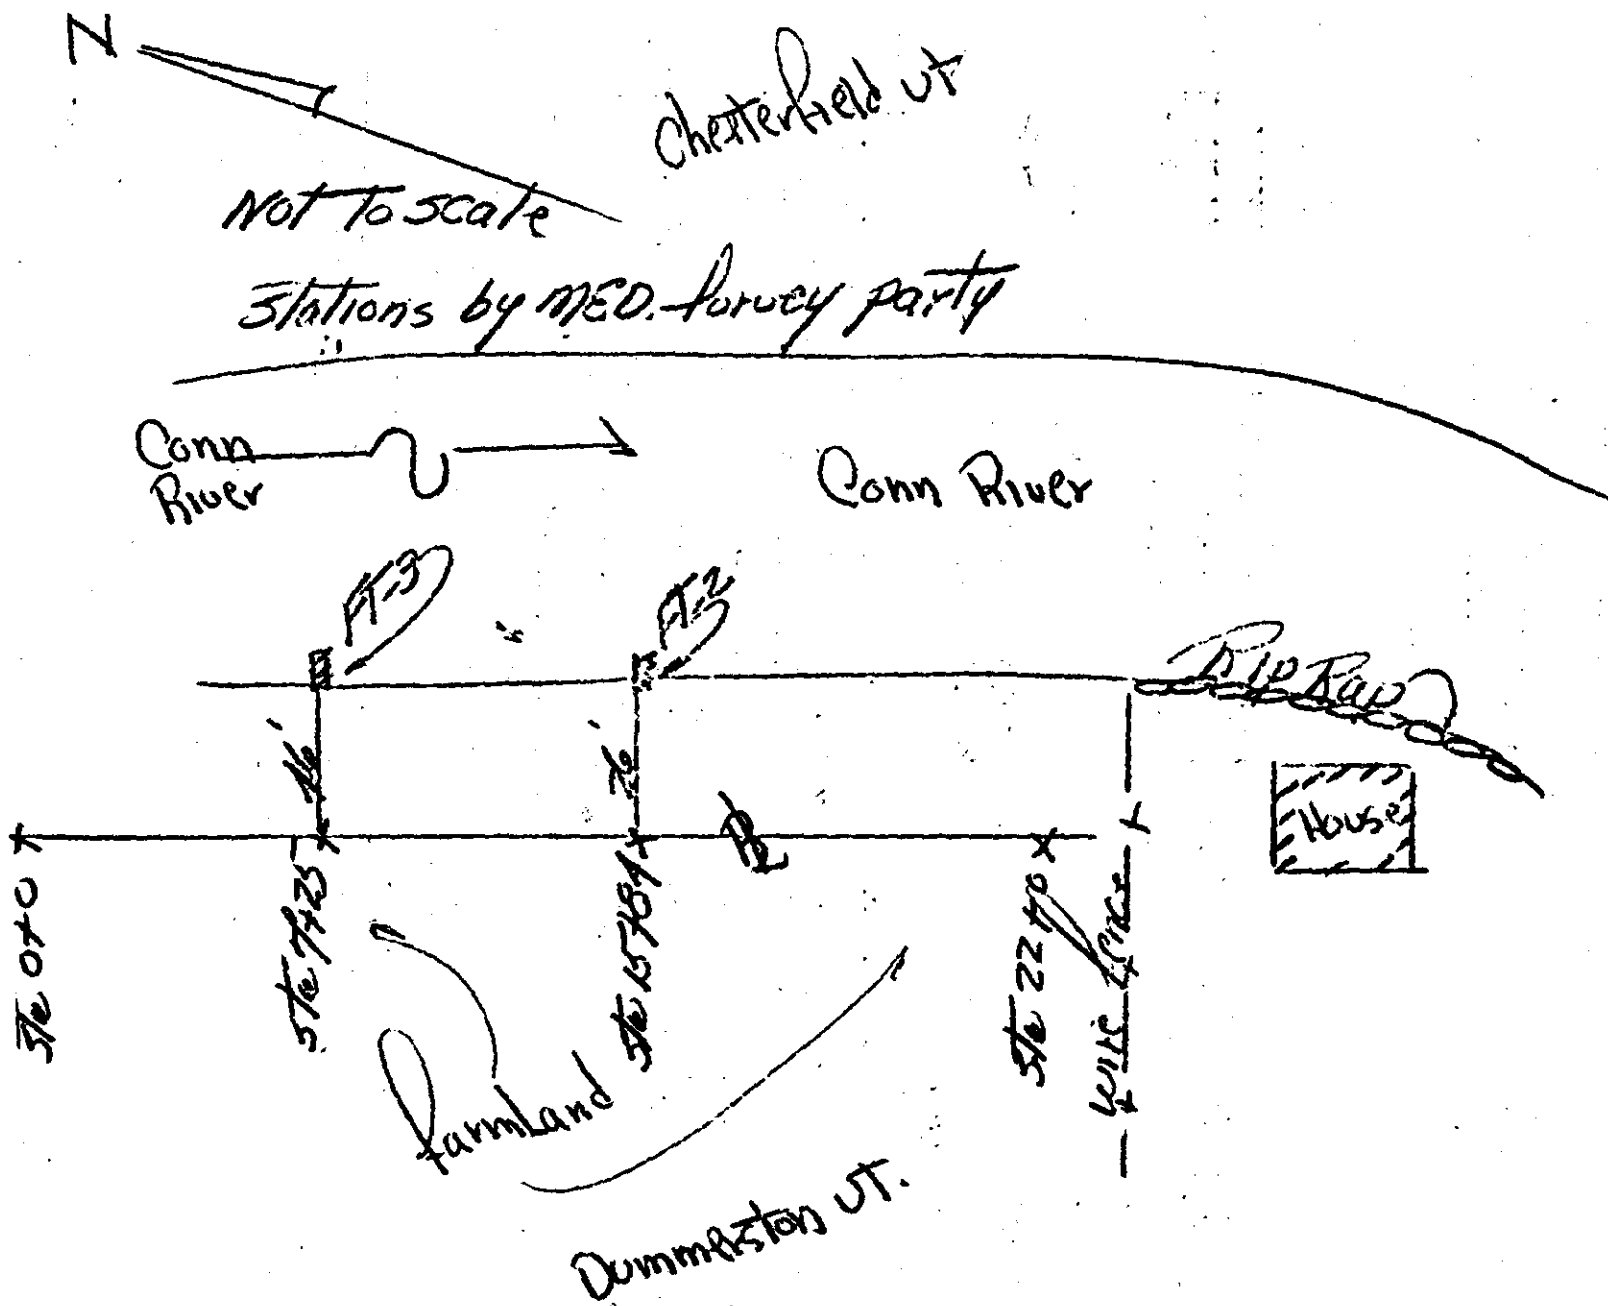 N
Chesterfield VT
Not To Scale
Stations by MED. Survey party
Conn
River
Conn River
FT-3
FT-2
Rip Rap
26'
BL
House
Sta 0+0
Sta 7+25
Sta 15+84
Sta 22+0
Wire fence
farmland
Dummerston VT.